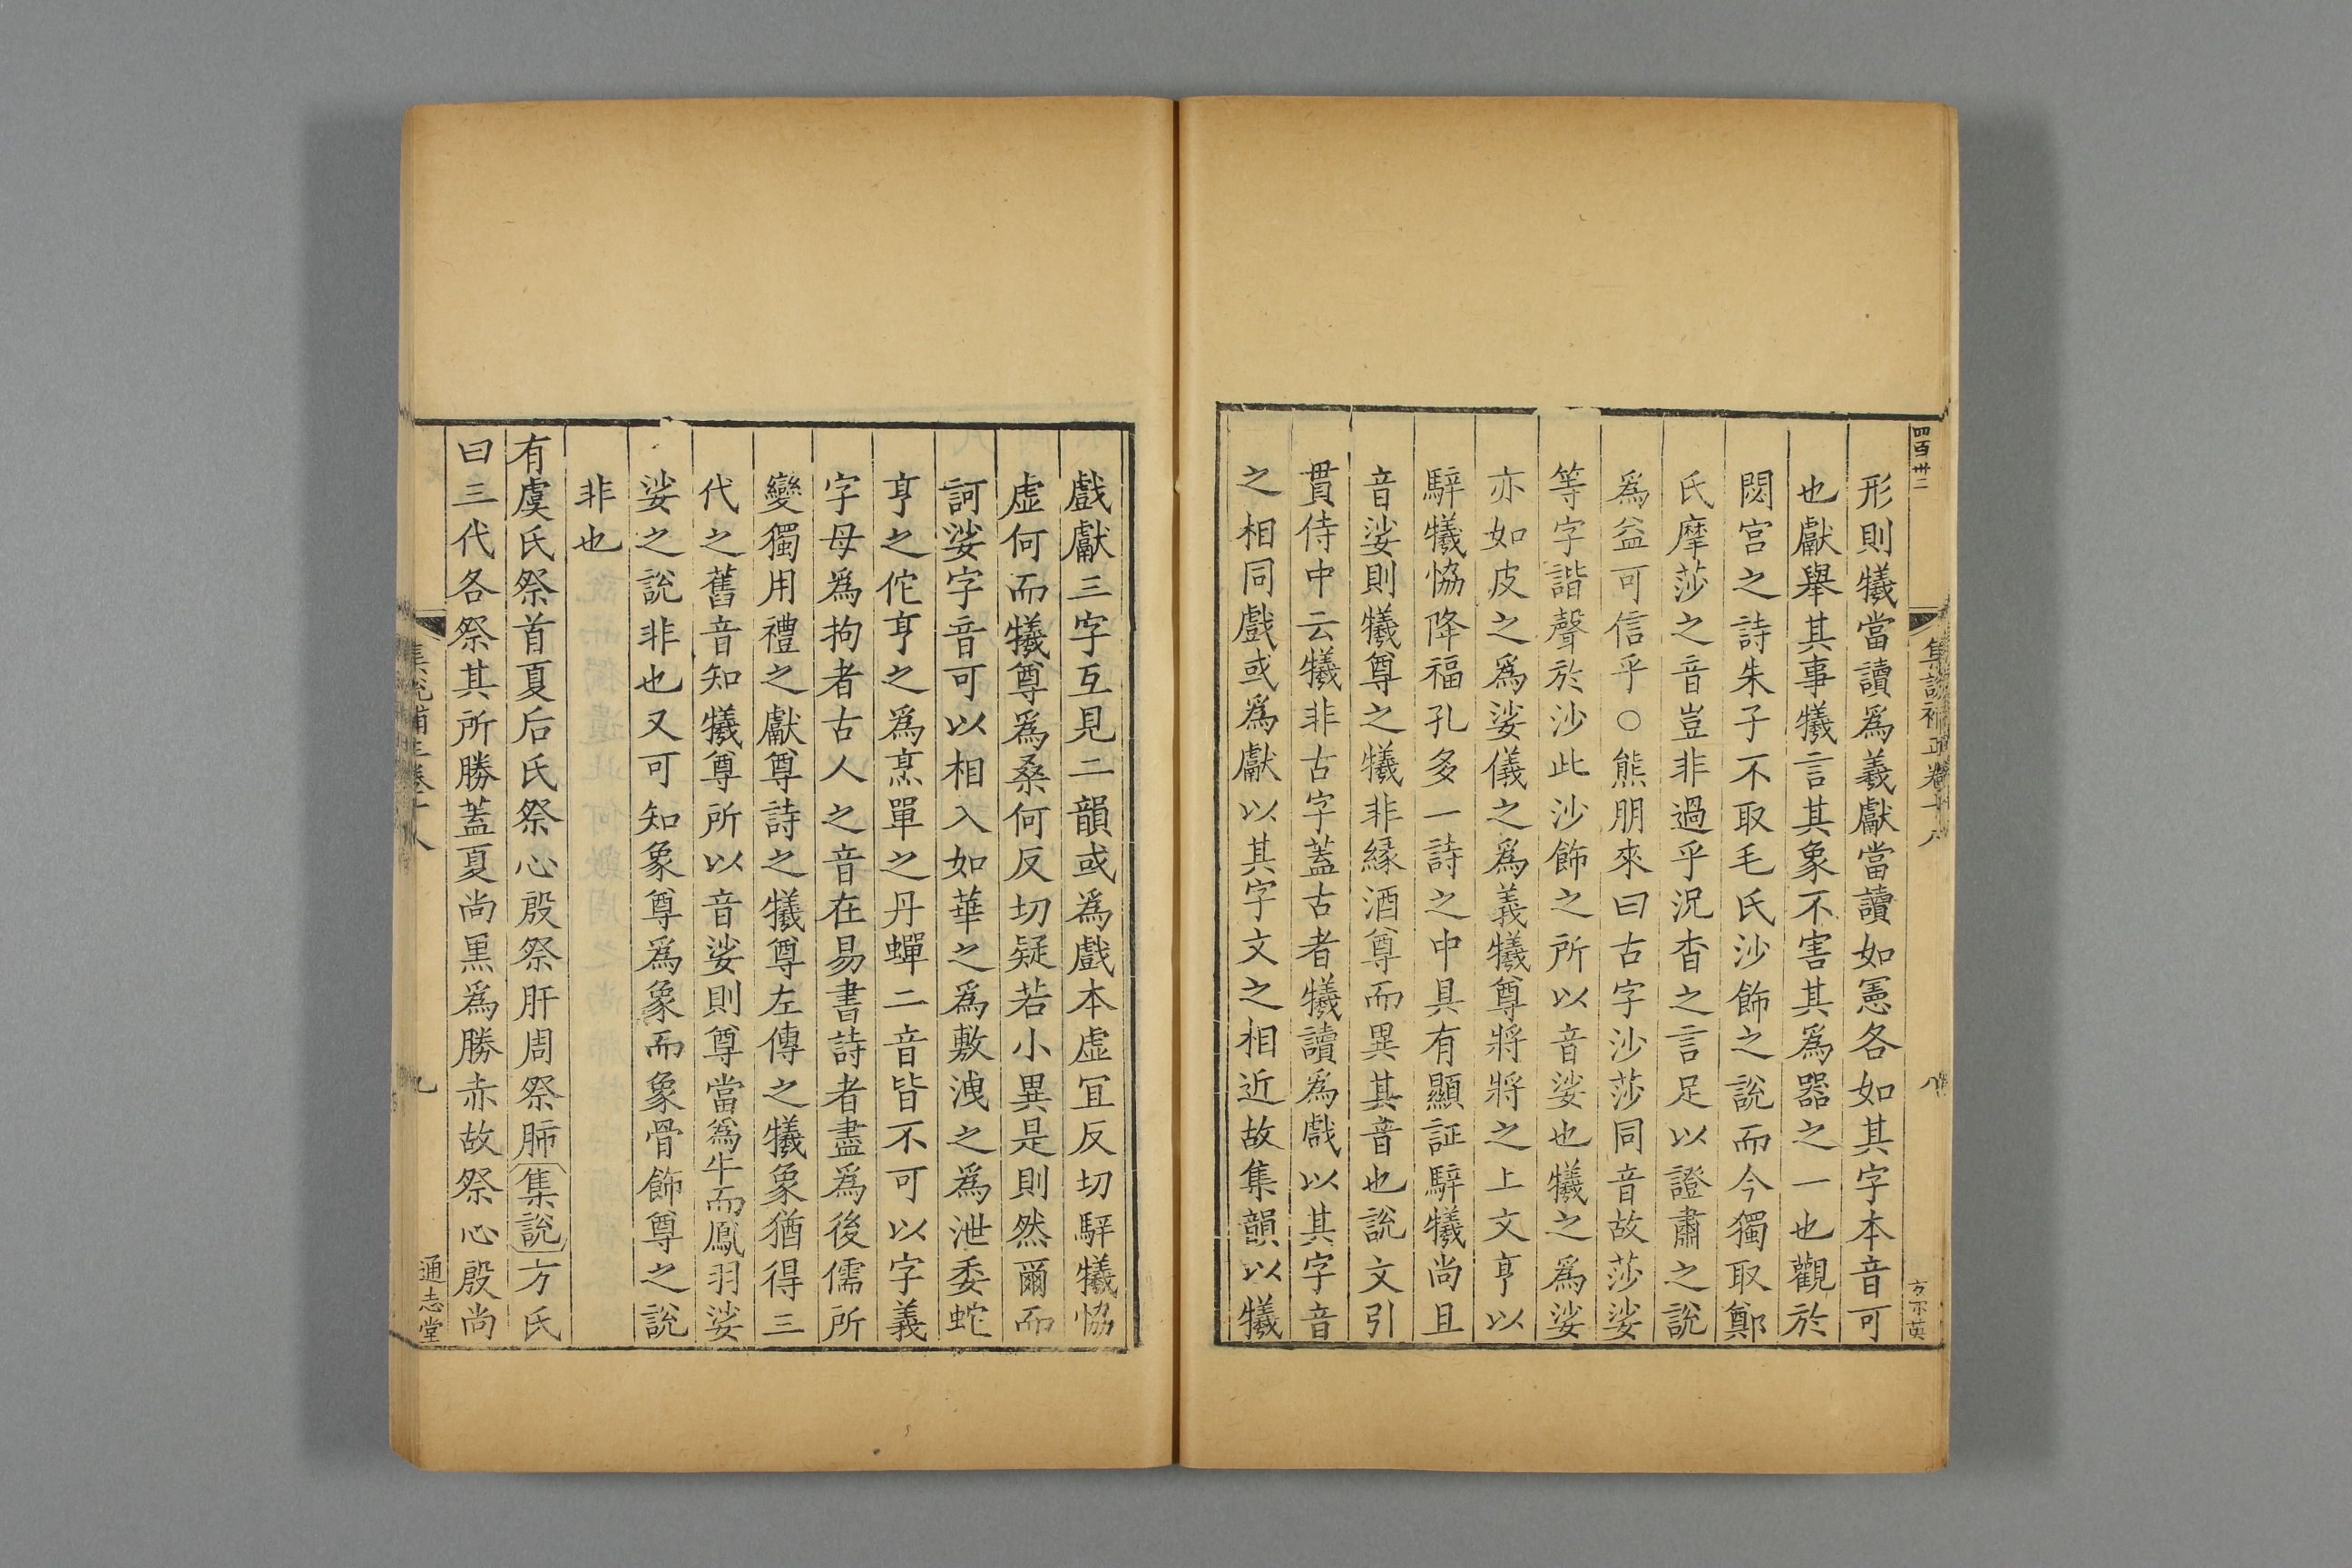 四百卅二
集說補正卷十八
八
形則犧當讀爲羲獻當讀如憲各如其字本音可
也獻舉其事犧言其象不害其爲器之一也觀於
閟宫之詩朱子不取毛氏沙飾之說而今獨取鄭
氏摩莎之音豈非過乎況杳之言足以證肅之說
爲益可信乎○熊朋來曰古字沙莎同音故莎娑
等字諧聲於沙此沙飾之所以音娑也犧之爲娑
亦如皮之爲婆儀之爲義犧尊將將之上文亨以
騂犧恊降福孔多一詩之中具有顯証騂犧尚且
音娑則犧尊之犧非緣酒尊而異其音也說文引
貫侍中云犧非古字蓋古者犧讀爲戲以其字音
之相同戲或爲獻以其字文之相近故集韻以犧
戲獻三字互見二韻或爲戲本虛宜反切騂犧恊
虛何而犧尊爲桑何反切疑若小異是則然爾而
訶娑字音可以相入如華之爲敷洩之爲泄委蛇
亨之佗亨之爲烹單之丹蟬二音皆不可以字義
字母爲拘者古人之音在易書詩者盡爲後儒所
變獨用禮之獻尊詩之犧尊左傳之犧象猶得三
代之舊音知犧尊所以音娑則尊當爲牛而鳳羽娑
娑之說非也又可知象尊爲象而象骨飾尊之說
非也
有虞氏祭首夏后氏祭心殷祭肝周祭肺集說方氏
曰三代各祭其所勝蓋夏尚黑爲勝赤故祭心殷尚
集說補正卷十八
九
通志堂